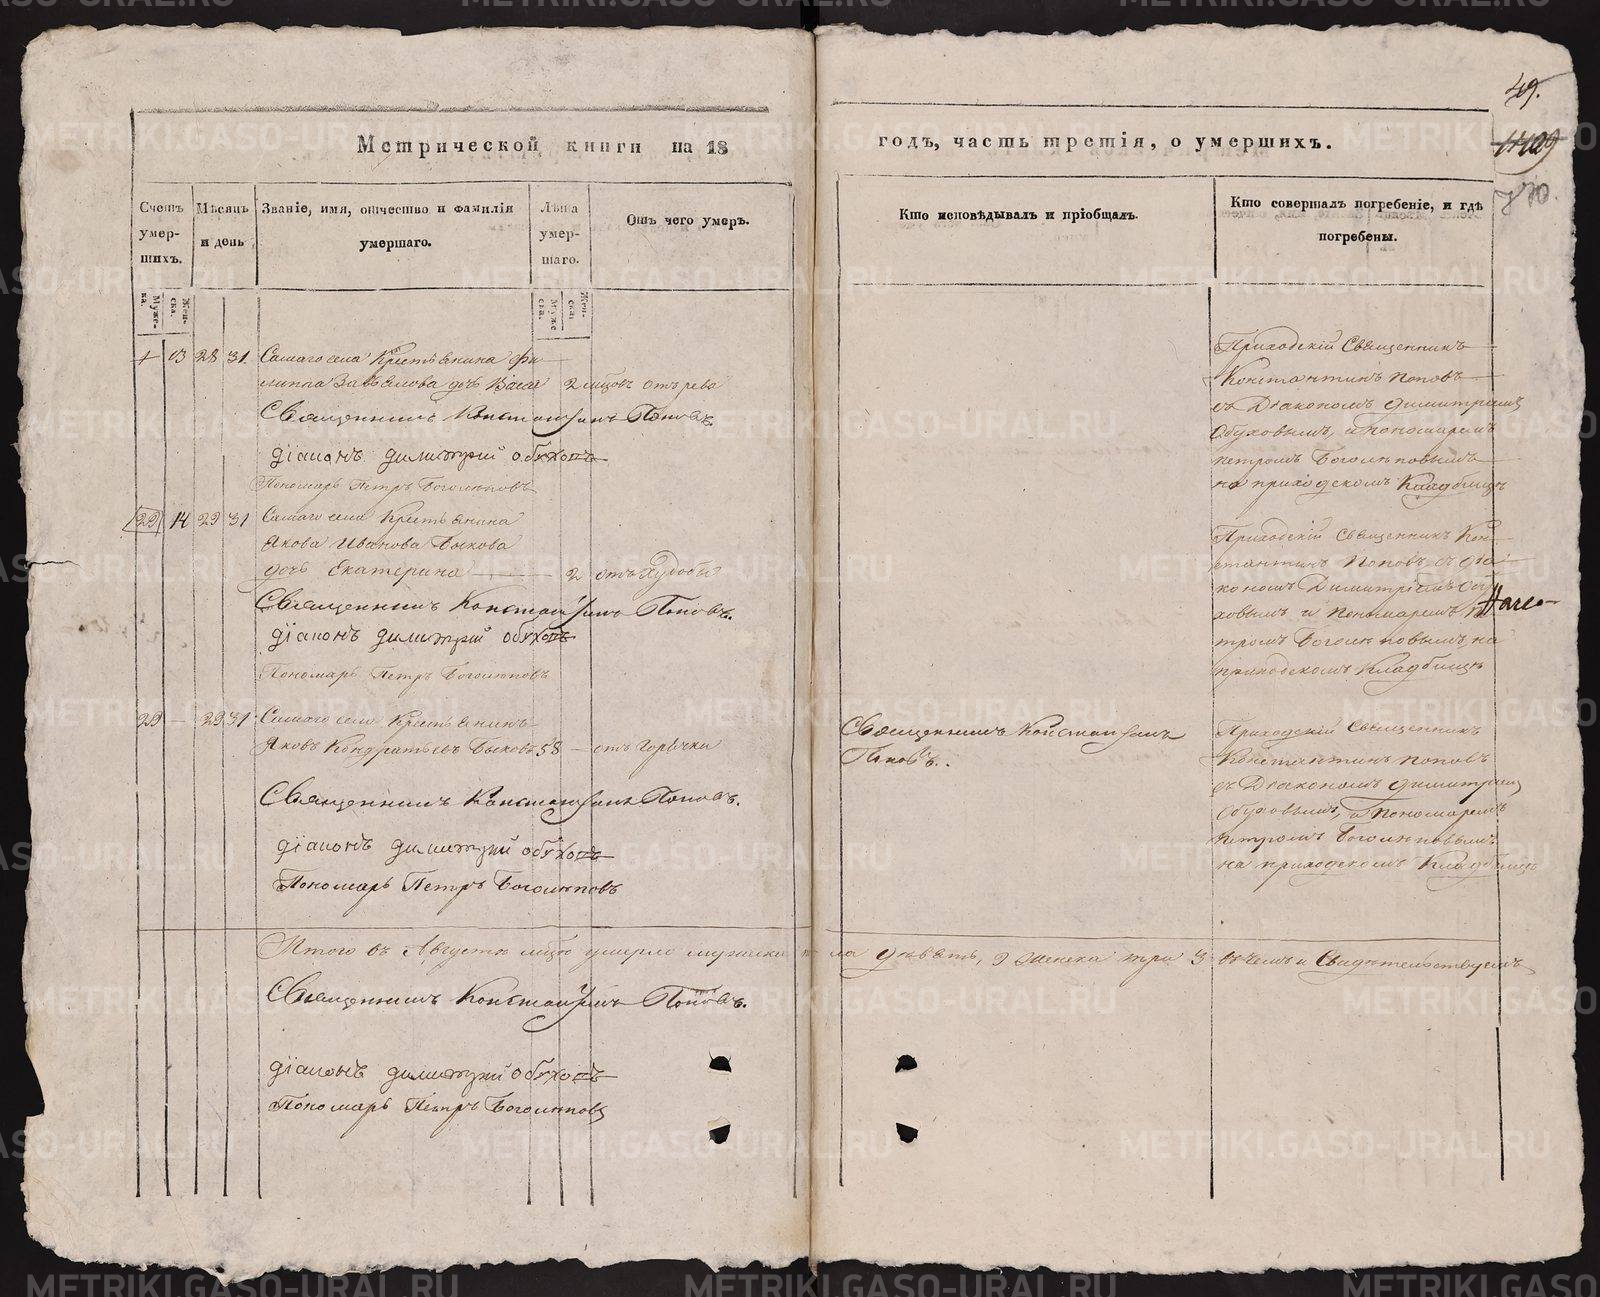 49.
Метрической книги на 18
годъ, часть третія, о умершихъ.
Счетъ умер-шихъ.
Мѣсяцъ и день
Званіе, имя, отчество и фамилія умершаго.
Лѣта умер-шаго.
Отъ чего умеръ.
Кто исповѣдывалъ и пріобщалъ.
Кто совершалъ погребеніе, и гдѣ погребены.
Муже-ска.
Жен-ска.
Муже ска.
Жен-ска.
13 28 31 Самаго села Крестьянина Фи-
липпа Завьялова дочь 2 отъ рева
Священникъ Константинъ Поповъ.
Діаконъ Димитрій Обуховъ
Пономарь Петръ Боголѣповъ
Приходскій Священникъ
Константинъ Поповъ
съ Діакономъ Димитріемъ
Обуховымъ, и Пономаремъ
Петромъ Боголѣповымъ
на приходскомъ Кладбищѣ
29 14 29 31 Самаго села Крестьянина
Якова Иванова Быкова
дочь Екатерина 2 отъ худобы
Священникъ Константинъ Поповъ.
Діаконъ Димитрій Обуховъ
Пономарь Петръ Боголѣповъ
Приходскій Священникъ Кон-
стантинъ Поповъ съ діа-
кономъ Димитріемъ Обу-
ховымъ и Пономаремъ Пе-
тромъ Боголѣповымъ на
приходскомъ Кладбищѣ
29 — 29 31 Самаго села Крестьянинъ
Яковъ Кондратьевъ Быковъ 58 — отъ Горячки
Священникъ Константинъ
Поповъ.
Священникъ Константинъ Поповъ.
Діаконъ Димитрій Обуховъ
Пономарь Петръ Боголѣповъ
Приходскій Священникъ
Константинъ Поповъ
съ Діакономъ Димитріем
Обуховымъ, и Пономаремъ
Петромъ Боголѣповымъ
на приходскомъ Кладбищѣ
Итого въ Августѣ мцѣ умерло мужеска пола девять, 9 женска три 3 въ чемъ и Свидѣтельствуемъ
Священникъ Константинъ Поповъ.
Діаконъ Димитрій Обуховъ
Пономарь Петръ Боголѣповъ
METRIKI.GASO-URAL.RU